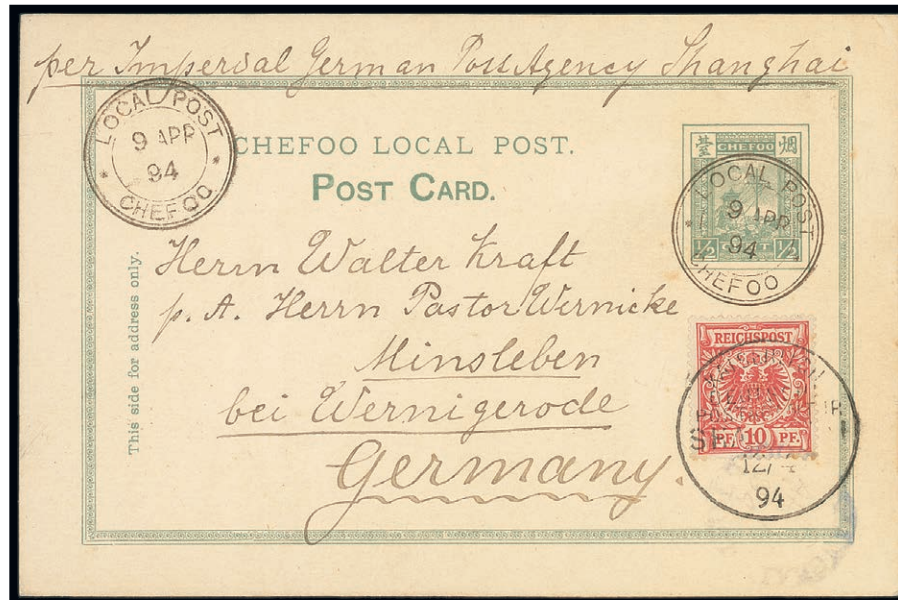 per Imperial German Post Agency Shanghai
LOCAL POST
9 APR
94
CHEFOO
CHEFOO LOCAL POST.
POST CARD.
臺 CHEFOO 烟
1/2 CENT 1/2
LOCAL POST
9 APR
94
CHEFOO
This side for address only.
Herrn Walter Kraft
p. A. Herrn Pastor Wernicke
Minsleben
bei Wernigerode
Germany.
REICHSPOST
PF. 10 PF.
12/4
94